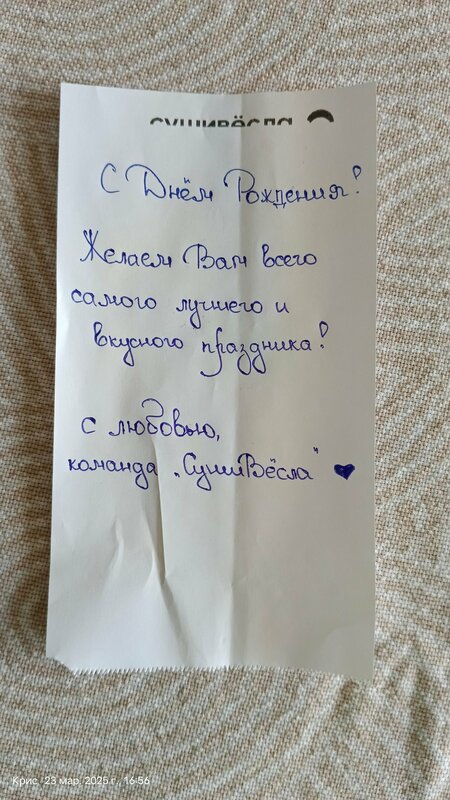 СУШИВЁСЛА
С Днём Рождения!
Желаем Вам всего
самого лучшего и
вкусного праздника!
с любовью,
команда „СушиВёсла"
Крис 23 мар. 2025 г., 16:56